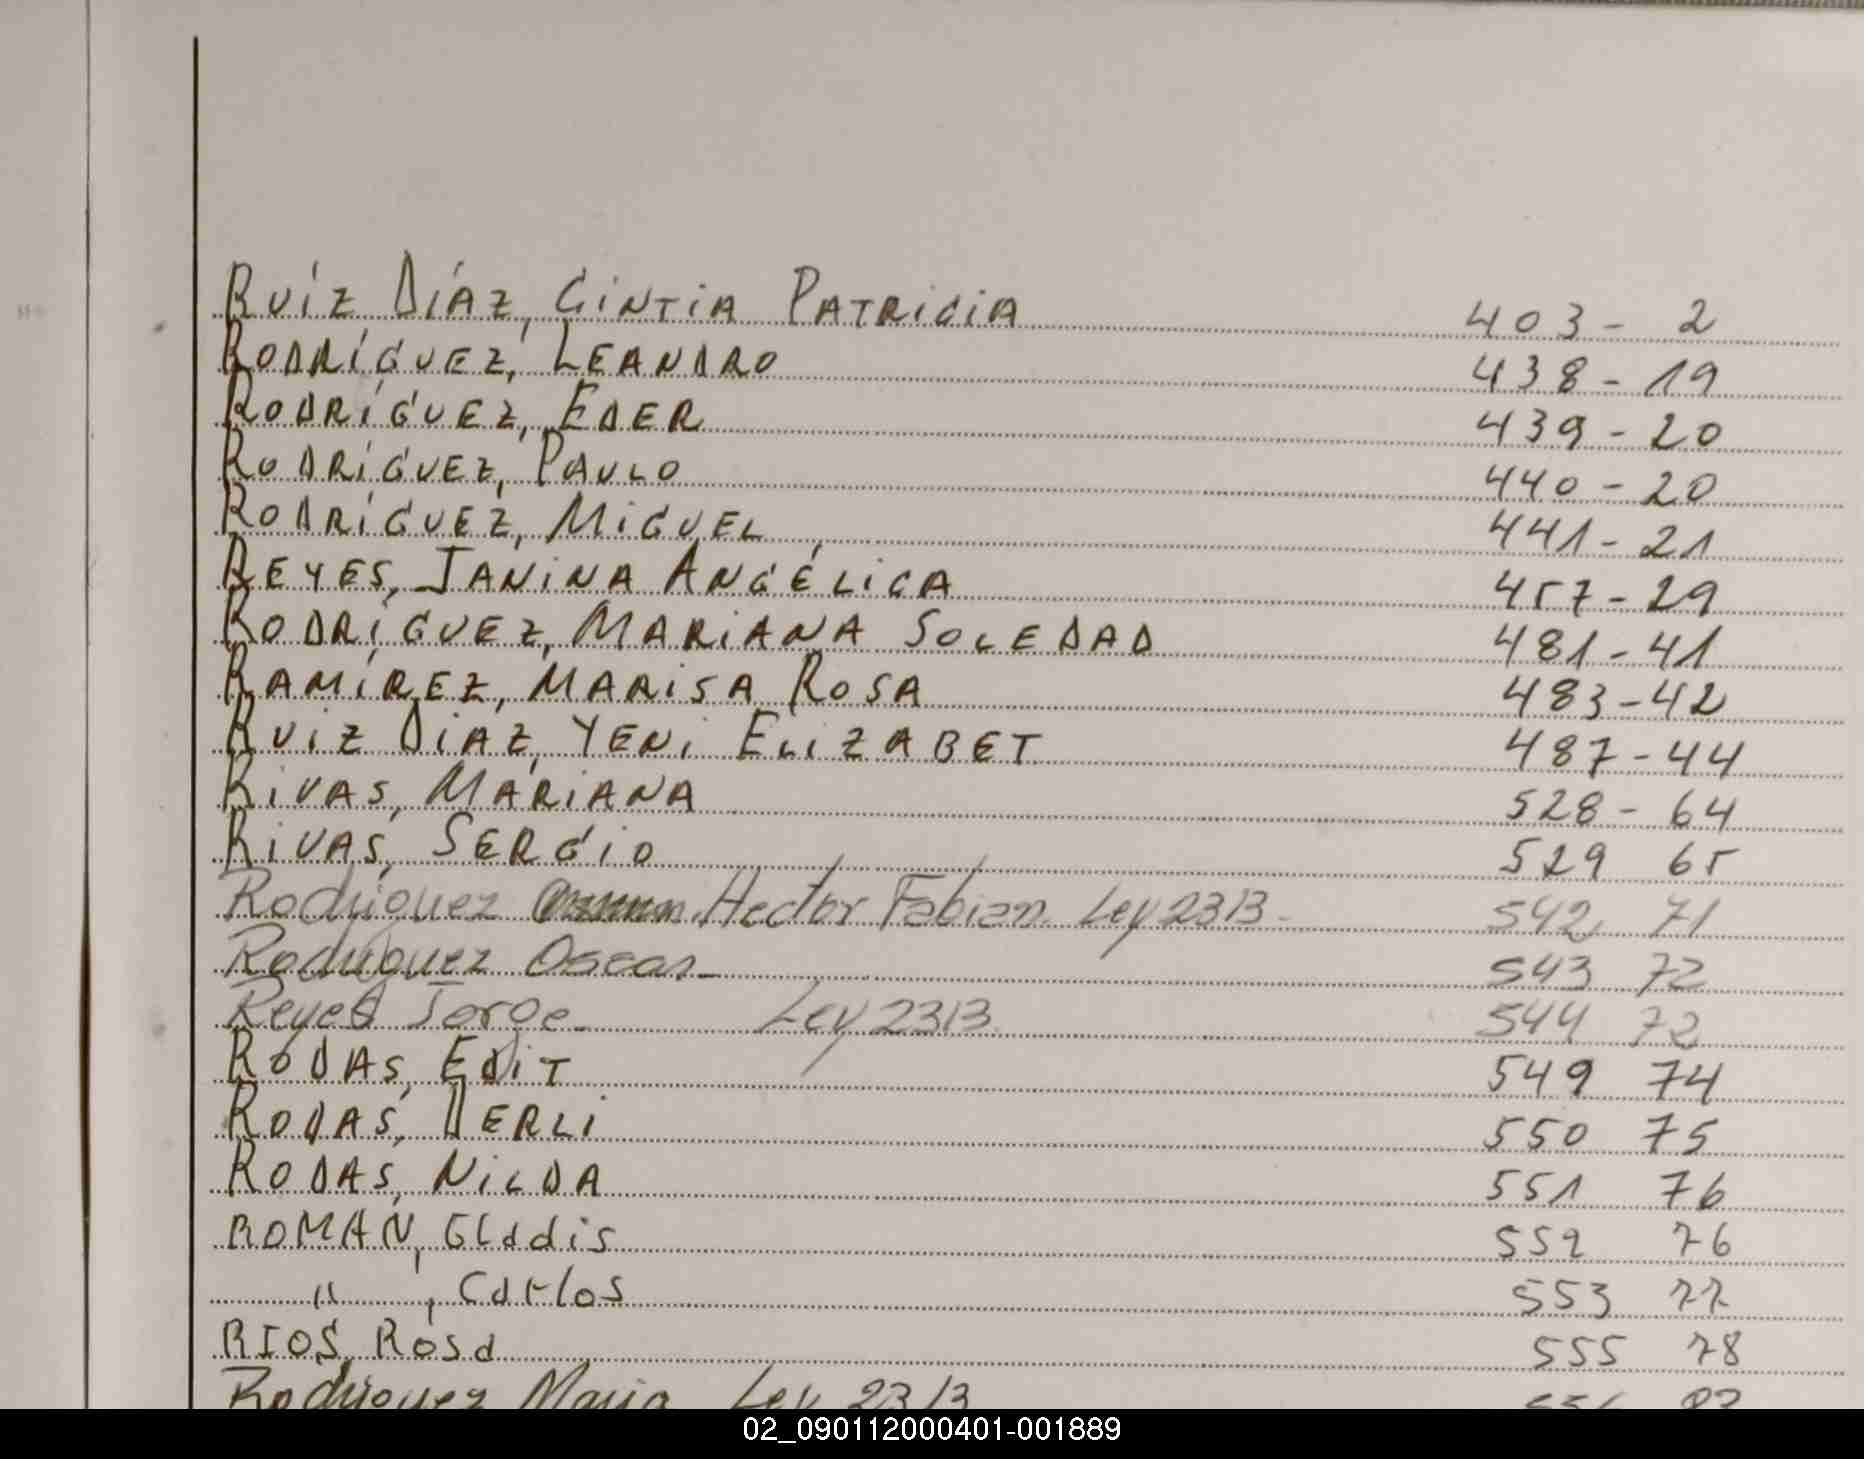 RUÍZ DÍAZ, CINTIA PATRICIA 403 - 2
RODRÍGUEZ, LEANDRO 438 - 19
RODRÍGUEZ, EDER 439 - 20
RODRÍGUEZ, PAULO 440 - 20
RODRÍGUEZ, MIGUEL 441 - 21
REYES, JANINA ANGÉLICA 457 - 29
RODRÍGUEZ, MARIANA SOLEDAD 481 - 41
RAMÍREZ, MARISA ROSA 483 - 42
RUIZ DIAZ, YENI ELIZABET 487 - 44
RIVAS, MARIANA 528 - 64
RIVAS, SERGIO 529 65
Rodriguez Hector Fabian. Ley 2313 - 542 71
Rodriguez Oscar - 543 72
Reyes Jorge - Ley 2313. 544 72
RODAS, EDIT 549 74
RODAS, DERLI 550 75
RODAS, NILDA 551 76
ROMAN, Gladis 552 76
" , Carlos 553 77
RIOS, Rosa 555 78
Rodriguez Maria Ley 2313
02_090112000401-001889